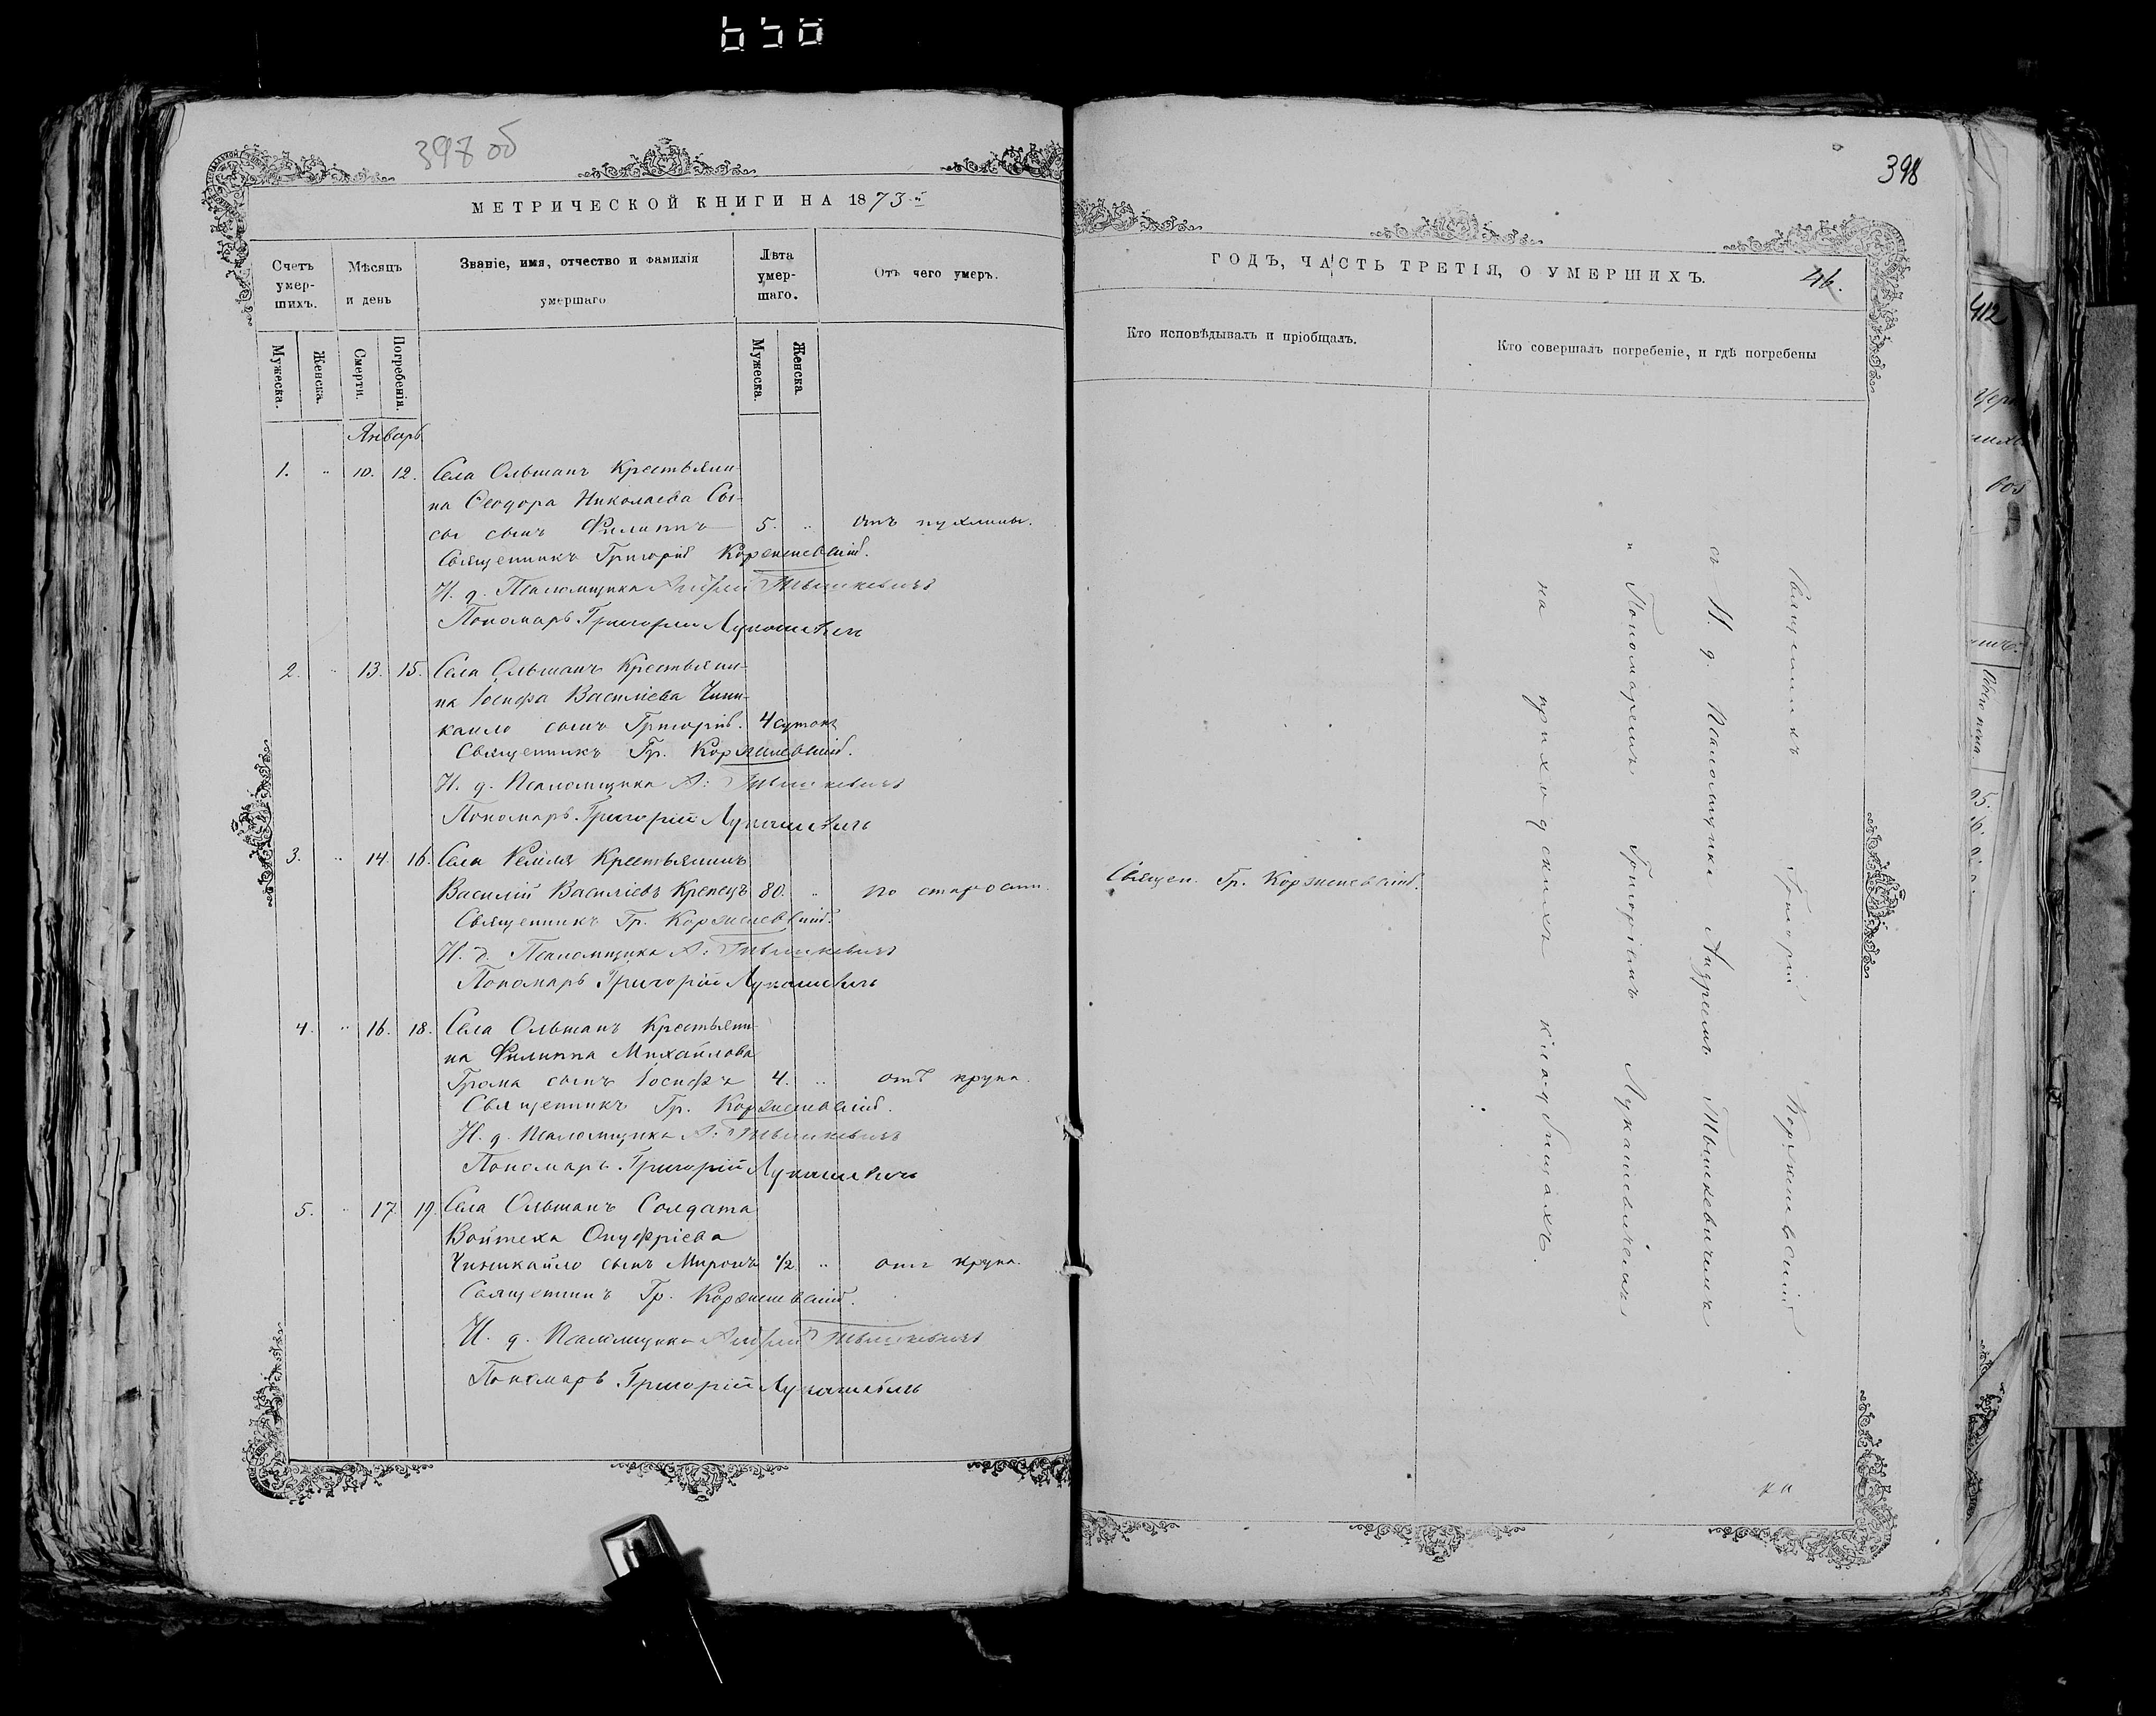 398 об
МЕТРИЧЕСКОЙ КНИГИ НА 1873-й
Счетъ умер-шихъ.
Мѣсяцъ и день
Званіе, имя, отчество и фамилія умершаго
Лѣта умер-шаго.
Отъ чего умеръ.
Мужеска.
Женска.
Смерти.
Погребенія.
Мужеска.
Женска
Январь
1. „ 10. 12. Села Ольшанъ Крестьяни-
на Ѳеодора Николаева Сы-
сы сынъ Филиппъ 5. „ отъ пухлины.
Священникъ Григорій Корженевскій.
И. д. Псаломщика Андрей Тышкевичъ
Пономарь Григорій Лукашевичъ
2. „ 13. 15. Села Ольшанъ Крестьяни-
на Іосифа Василіева Чини-
кайло сынъ Григорій. 4 сутокъ
Священникъ Гр. Корженевскій.
И. д. Псаломщика А: Тышкевичъ
Пономарь Григорій Лукашевичъ
3. „ 14. 16. Села Крестьянинъ
Василій Василіевъ Крепецъ 80. „ по старости.
Священникъ Гр. Корженевскій.
И. д. Псаломщика А: Тышкевичъ
Пономарь Григорій Лукашевичъ
4. „ 16. 18. Села Ольшанъ Крестьяни-
на Филиппа Михайлова
сынъ Іосифъ 4. „ отъ крупа.
Священникъ Гр. Корженевскій.
И. д. Псаломщика А: Тышкевичъ
Пономарь Григорій Лукашевичъ
5. „ 17. 19. Села Ольшанъ Солдата
Войтеха Онуфріева
Чиникайло сынъ Миронъ 1/2 „ отъ крупа.
Священникъ Гр. Корженевскій.
И. д. Псаломщика Андрей Тышкевичъ
Пономарь Григорій Лукашевичъ
398
ГОДЪ, ЧАСТЬ ТРЕТІЯ, О УМЕРШИХЪ.
46.
Кто исповѣдывалъ и пріобщалъ.
Кто совершалъ погребеніе, и гдѣ погребены
Священ. Гр. Корженевскій.
Священникъ Григорій Корженевскій
съ И. д. Псаломщика Андреемъ Тышкевичемъ
и Пономаремъ Григоріемъ Лукашевичемъ
на приходскихъ кладбищахъ.
412